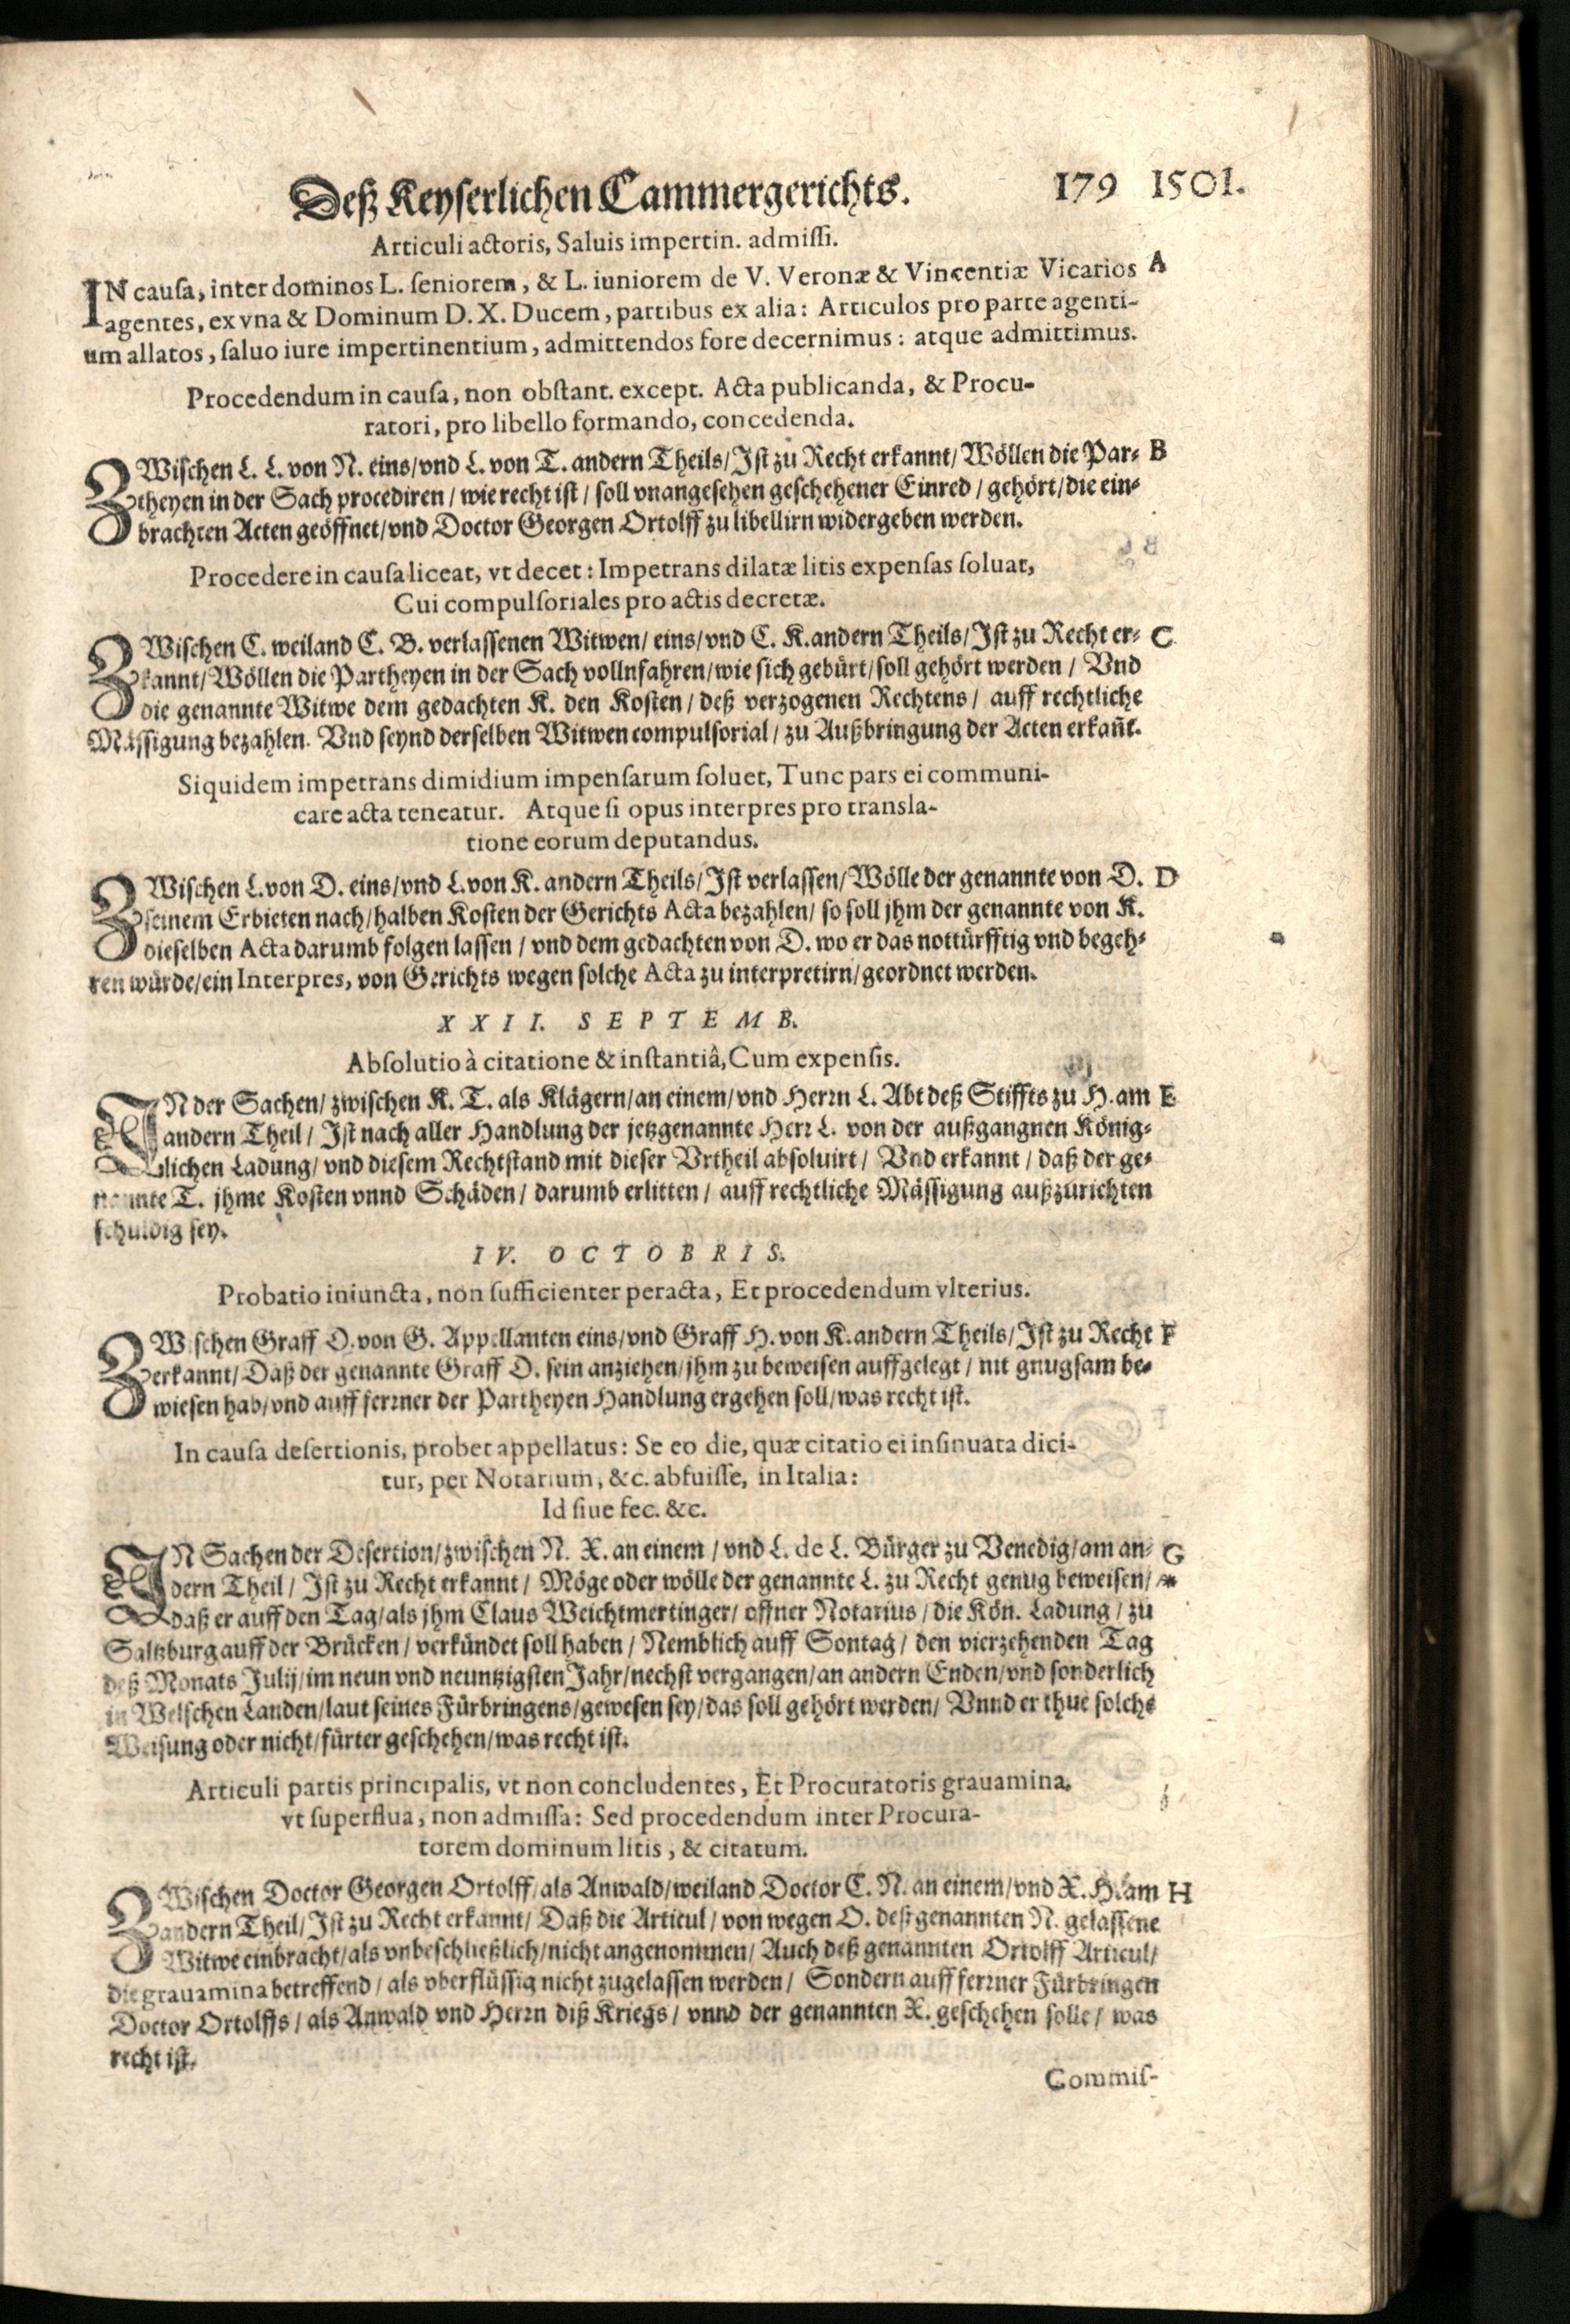 Deß Keyserlichen Cammergerichts. 179 1501.
Articuli actoris, Saluis impertin. admissi.
IN causa, inter dominos L. seniorem, & L. iuniorem de V. Veronæ & Vincentiæ Vicarios A
agentes, ex vna & Dominum D. X. Ducem, partibus ex alia: Articulos pro parte agenti-
um allatos, saluo iure impertinentium, admittendos fore decernimus: atque admittimus.
Procedendum in causa, non obstant. except. Acta publicanda, & Procu-
ratori, pro libello formando, concedenda.
ZWischen L. L. von N. eins/vnd L. von T. andern Theils/Ist zu Recht erkannt/Wöllen die Par- B
theyen in der Sach procediren/wie recht ist/soll vnangesehen geschehener Einred/gehört/die ein-
brachten Acten geöffnet/vnd Doctor Georgen Ortolff zu libellirn widergeben werden.
Procedere in causa liceat, vt decet: Impetrans dilatæ litis expensas soluat,
Cui compulsoriales pro actis decretæ.
ZWischen C. weiland C. B. verlassenen Witwen/eins/vnd C. K. andern Theils/Ist zu Recht er- C
kannt/Wöllen die Partheyen in der Sach vollnfahren/wie sich gebürt/soll gehört werden/Vnd
die genannte Witwe dem gedachten K. den Kosten/deß verzogenen Rechtens/auff rechtliche
Mässigung bezahlen. Vnd seynd derselben Witwen compulsorial/zu Außbringung der Acten erkañt.
Siquidem impetrans dimidium impensarum soluet, Tunc pars ei communi-
care acta teneatur. Atque si opus interpres pro transla-
tione eorum deputandus.
ZWischen L. von D. eins/vnd L. von K. andern Theils/Ist verlassen/Wölle der genannte von D. D
seinem Erbieten nach/halben Kosten der Gerichts Acta bezahlen/so soll jhm der genannte von K.
dieselben Acta darumb folgen lassen/vnd dem gedachten von D. wo er das nottürfftig vnd begeh-
ren würde/ein Interpres, von Gerichts wegen solche Acta zu interpretirn/geordnet werden.
XXII. SEPTEMB.
Absolutio à citatione & instantiâ, Cum expensis.
IN der Sachen/zwischen K. T. als Klägern/an einem/vnd Herrn L. Abt deß Stiffts zu H. am E
andern Theil/Ist nach aller Handlung der jetzgenannte Herr L. von der außgangnen König-
lichen Ladung/vnd diesem Rechtstand mit dieser Vrtheil absoluirt/Vnd erkannt/daß der ge-
nannte T. jhme Kosten vnnd Schäden/darumb erlitten/auff rechtliche Mässigung außzurichten
schuldig sey.
IV. OCTOBRIS.
Probatio iniuncta, non sufficienter peracta, Et procedendum vlterius.
ZWischen Graff O. von G. Appellanten eins/vnd Graff H. von K. andern Theils/Ist zu Recht F
erkannt/Daß der genannte Graff O. sein anziehen/jhm zu beweisen auffgelegt/nit gnugsam be-
wiesen hab/vnd auff ferrner der Partheyen Handlung ergehen soll/was recht ist.
In causa desertionis, probet appellatus: Se eo die, quæ citatio ei insinuata dici-
tur, per Notarium, &c. abfuisse, in Italia:
Id siue fec. &c.
IN Sachen der Desertion/zwischen N. X. an einem/vnd L. de L. Bürger zu Venedig/am an- G
dern Theil/Ist zu Recht erkannt/Möge oder wölle der genannte L. zu Recht genug beweisen/
daß er auff den Tag/als jhm Claus Weichtmertinger/offner Notarius/die Kön. Ladung/zu
Saltzburg auff der Brücken/verkündet soll haben/Nemblich auff Sontag/den vierzehenden Tag
deß Monats Julij/im neun vnd neuntzigsten Jahr/nechst vergangen/an andern Enden/vnd sonderlich
in Welschen Landen/laut seines Fürbringens/gewesen sey/das soll gehört werden/Vnnd er thue solche
Weisung oder nicht/fürter geschehen/was recht ist.
Articuli partis principalis, vt non concludentes, Et Procuratoris grauamina,
vt superflua, non admissa: Sed procedendum inter Procura-
torem dominum litis, & citatum.
ZWischen Doctor Georgen Ortolff/als Anwald/weiland Doctor C. N. an einem/vnd X. H. am H
andern Theil/Ist zu Recht erkannt/Daß die Articul/von wegen O. deß genannten N. gelassene
Witwe einbracht/als vnbeschließlich/nicht angenommen/Auch deß genannten Ortolff Articul/
die grauamina betreffend/als vberflüssig nicht zugelassen werden/Sondern auff ferrner Fürbringen
Doctor Ortolffs/als Anwald vnd Herrn diß Kriegs/vnnd der genannten X. geschehen solle/was
recht ist.
Commis-